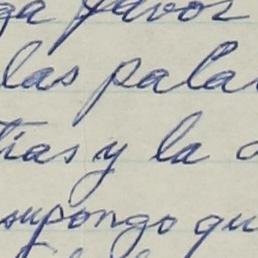 favor
las pala
tias y la
supongo qu